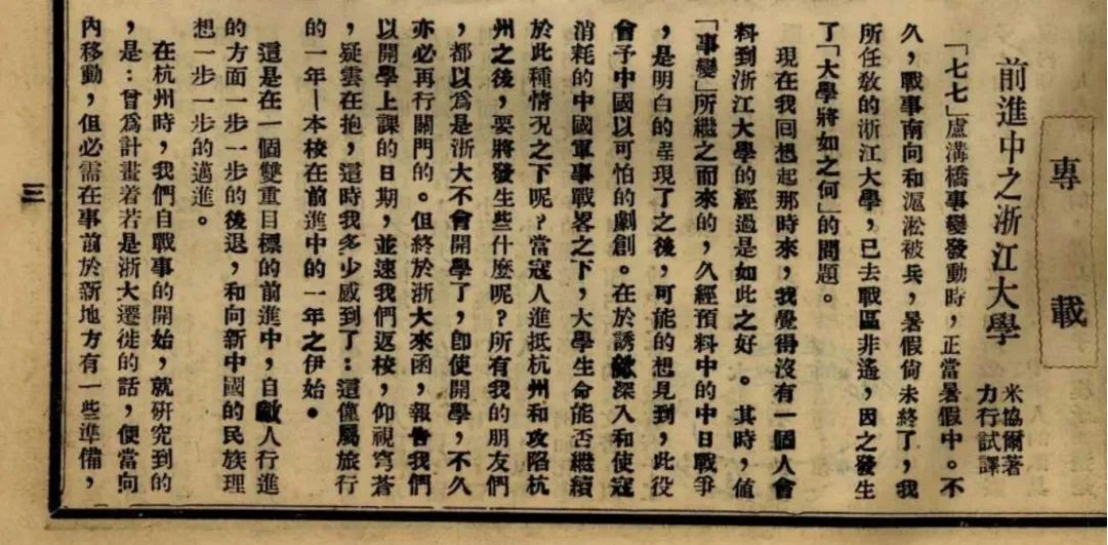 專載
前進中之浙江大學
米協爾著
力行試譯
「七七」盧溝橋事變發動時，正當暑假中。不
久，戰事南向和滬淞被兵，暑假尙未終了，我
所任敎的浙江大學，已去戰區非遙，因之發生
了「大學將如之何」的問題。
現在我囘想起那時來，我覺得沒有一個人會
料到浙江大學的經過是如此之好。其時，値
「事變」所繼之而來的，久經預料中的中日戰爭
，是明白的呈現了之後，可能的想見到，此役
會予中國以可怕的劇創。在於誘敵深入和使寇
消耗的中國軍事戰畧之下，大學生命能否繼續
於此種情况之下呢？當寇人進抵杭州和攻陷杭
州之後，要將發生些什麼呢？所有我的朋友們
，都以爲是浙大不會開學了，卽使開學，不久
亦必再行關門的。但終於浙大來函，報告我們
以開學上課的日期，並速我們返校，仰視穹蒼
，疑雲在抱，這時我多少感到了：這僅屬旅行
的一年—本校在前進中的一年之伊始。
這是在一個雙重目標的前進中，自敵人行進
的方面一步一步的後退，和向新中國的民族理
想一步一步的邁進。
在杭州時，我們自戰事的開始，就硏究到的
，是：曾爲計畫着若是浙大遷徙的話，便當向
內移動，但必需在事前於新地方有一些準備，
三